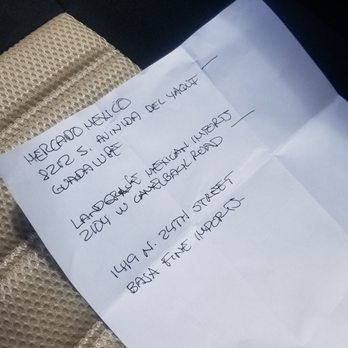 MERCADO MEXICO
8212 S. AVINIDA DEL YAQUI
GUADALUPE
LANDGRANT MEXICAN IMPORTS
2104 W CAMELBACK ROAD
1419 N. 24TH STREET
BAJA FINE IMPORTS